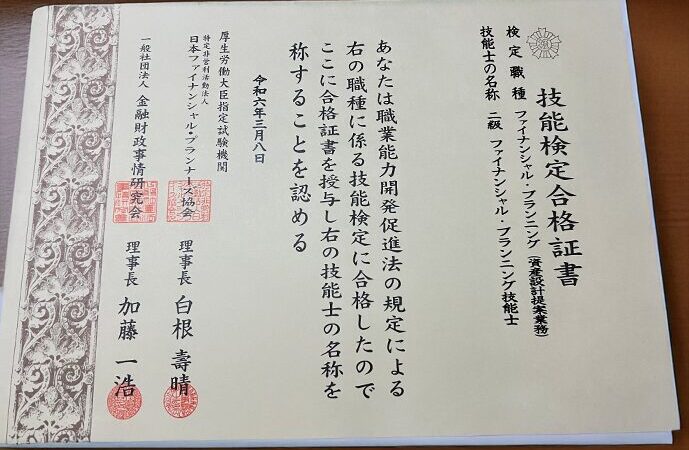 技能検定合格証書
検定職種 ファイナンシャル・プランニング(資産設計提案業務)
技能士の名称 二級 ファイナンシャル・プランニング技能士
あなたは職業能力開発促進法の規定による
右の職種に係る技能検定に合格したので
ここに合格証書を授与し右の技能士の名称を
称することを認める
令和六年三月八日
厚生労働大臣指定試験機関
特定非営利活動法人
日本ファイナンシャル・プランナーズ協会
理事長 白根壽晴
一般社団法人 金融財政事情研究会
理事長 加藤一浩